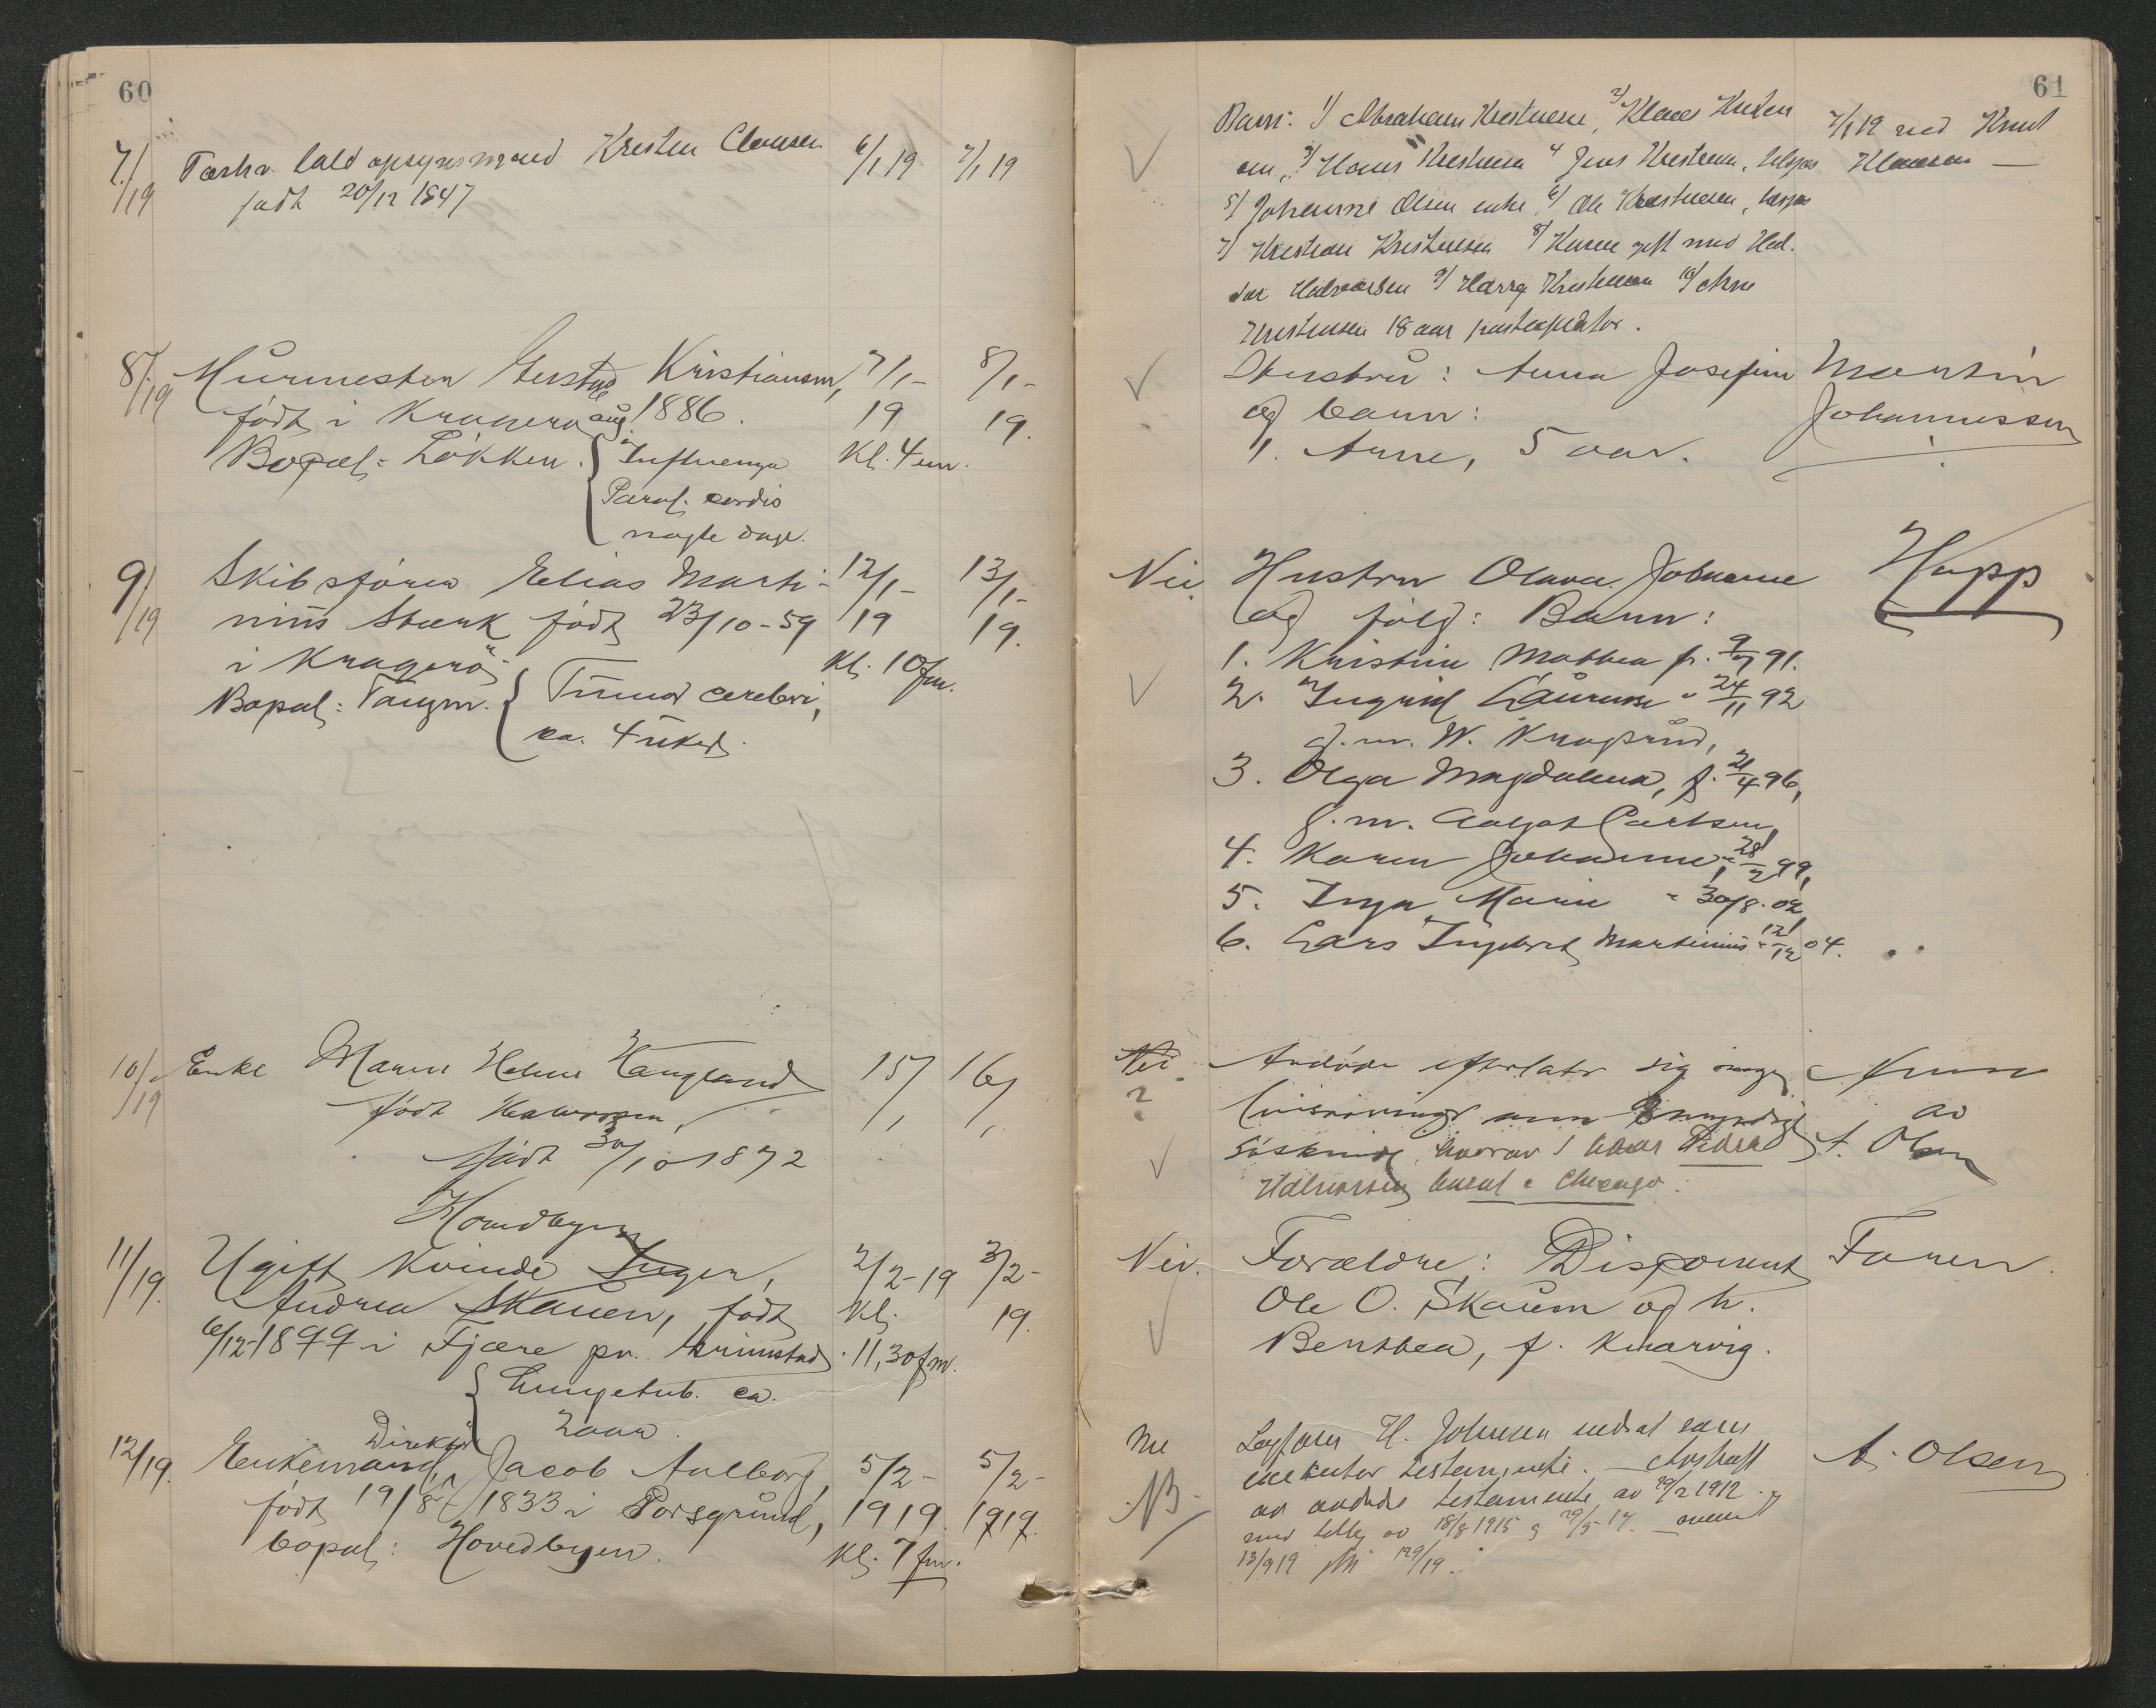 60
7/19 Kresten Clausen 6/1 19 7/1 19
født 20/12 1847
8/19 Murmester Gustav Kristiansen, 7/1- 8/1-
født i Kragerø aug. 1886. 19 19.
Bopæl: Løkken. { Influenza Kl. 4 em.
Paral. cordis
nogle dage.
9/19 Skibsfører Elias Marti- 12/1- 13/1-
nius Stærk født 23/10-59 19 19.
i Kragerø Kl. 10 fm.
Bopæl: Tangen. { Tumor cerebri,
ca. 4 uker.
10/19 Enke Maren Helene Haugland 15/1 16/1
født Halvorsen,
født 30/10 1872
Hovedbyen
11/19. Ugift kvinde Inger, 2/2-19 3/2-
Andrea Skauen, født Kl. 19.
6/12-1899 i Fjære pr. Grimstad. 11,30 fm.
{ Lungetub. ca.
2 aar.
Direktør
12/19. Enkemand, Jacob Aulborg, 5/2- 5/2-
født 19/8 1833 i Porsgrund, 1919. 1919.
bopæl: Hovedbyen. Kl. 7 fm.
61
Barn: 1) Abraham Kristensen, 2) Klaus Kristen 7/1 19 ved Knut
sen, 3) Hans Kristensen 4 Jens Kristensen, Clausen —
5) Johanne Olsen enke 6) Ole Kristensen,
7) Kristian Kristensen 8) Karen gift med Hal-
dor Halvorsen 9) Harry Kristensen 10) Arne
Kristensen 18 aar postexpeditør.
Hustru: Anna Josefine Martin
og barn: Johannessen
1. Anne, 5 aar.
Nei. Hustru Olava Johanne Hupp
og følg: Barn:
1. Kristine Mathea f. 9/7 91.
2. Ingrid Laurense " 24/11 92
g. m. W. Kragsrud,
3. Olga Magdalena, f. 21/4 96,
g. m. Carlsen,
4. Karen Johanne, " 28/2 99,
5. Inga Marie " 30/8. 02,
6. Lars Ingebret Martinius " 12/12 04.
Nei Avdøde efterlater sig ingen
? livsarvinger men 8 myndige av
søskende, hvorav 1 A. Olsen
Halvorsen bosat i Chicago.
Nei. Forældre: Disponent Faren.
Ole O. Skauen og h.
Benthea, f. Knarvig.
Nei H. Johnsen indsat som A. Olsen
executor testamenti. — Avskrift
NB. av avdødes testamente av 29/2 1912
med tillæg av 18/8 1915 og 29/5 17.
13/9 19 129/19.